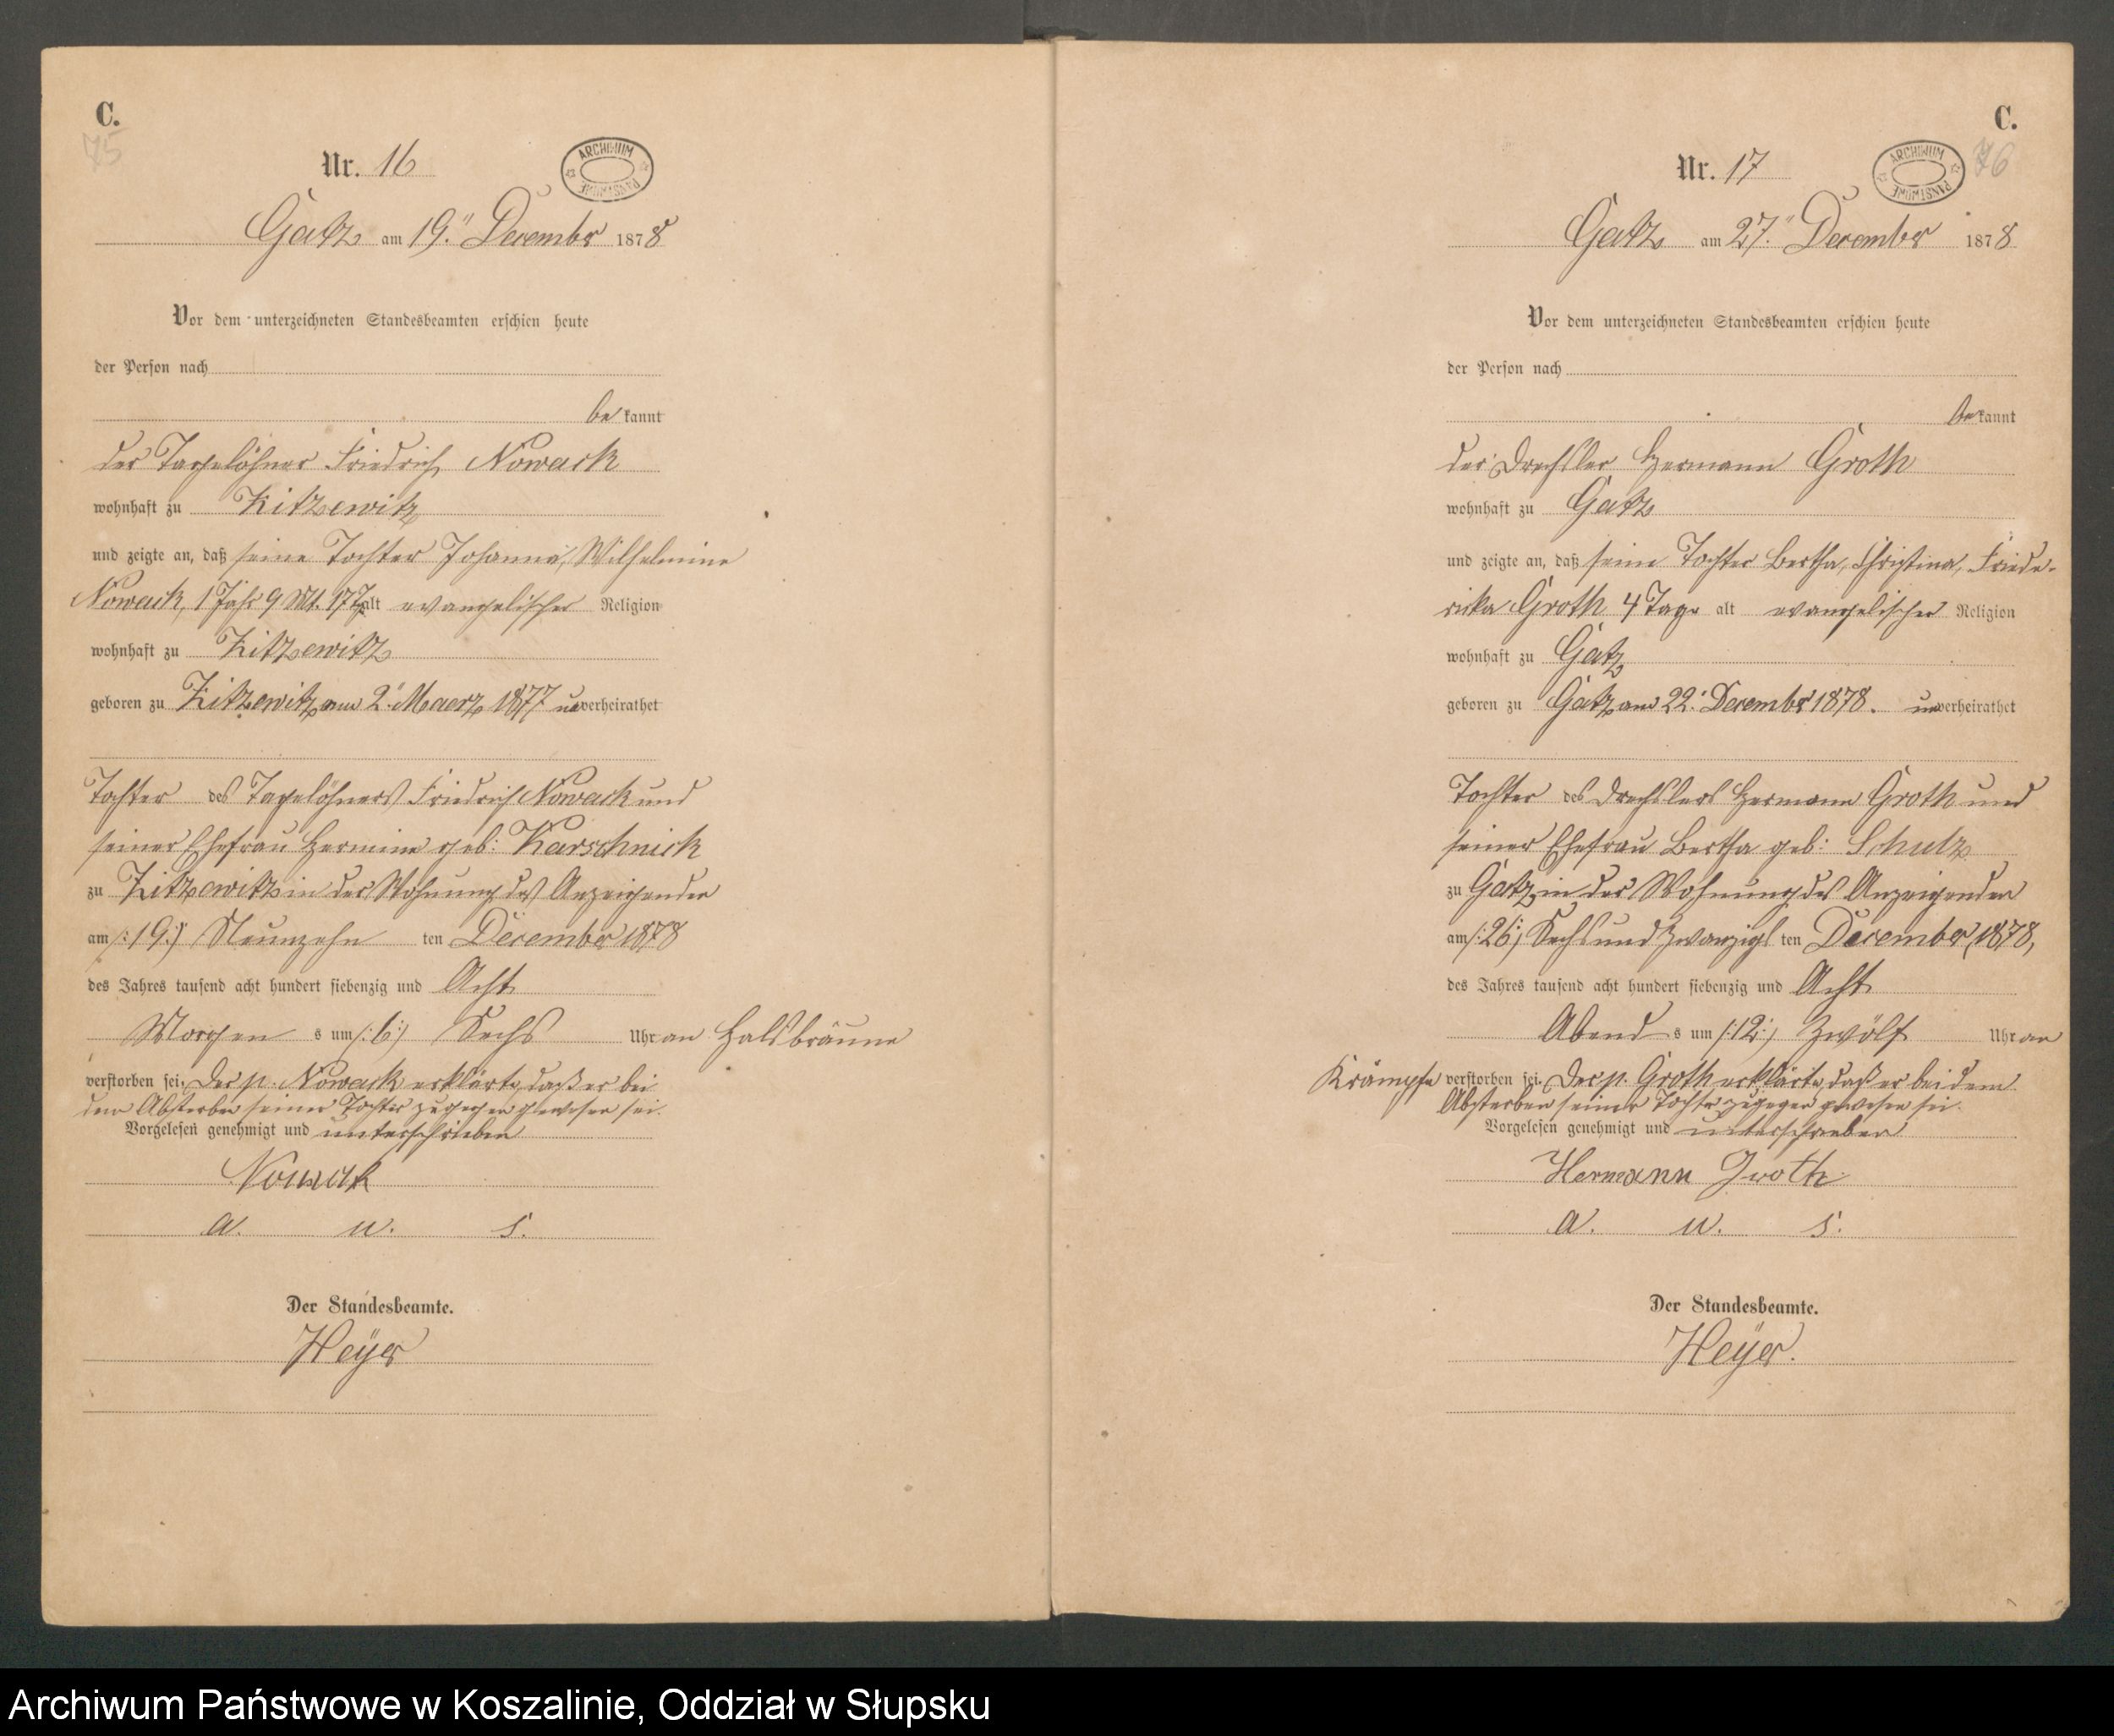 C.
75
Nr. 16
ARCHIWUM PAŃSTWOWE
Gatz am 19. December 1878
Vor dem unterzeichneten Standesbeamten erschien heute
der Person nach
be kannt
der Tagelöhner Friedrich Nowack
wohnhaft zu Zitzewitz
und zeigte an, daß seine Tochter Johanna, Wilhelmine
Nowack, 1 Jahr 9 Mt. 17 T. alt evangelischer Religion
wohnhaft zu Zitzewitz
geboren zu Zitzewitz am 2. Maerz 1877 unverheirathet
Tochter des Tagelöhners Friedrich Nowack und
seiner Ehefrau Hermine geb: Karschnick
zu Zitzewitz in der Wohnung des Anzeigenden
am /:19:/ Neunzehn ten December 1878
des Jahres tausend acht hundert siebenzig und Acht
Morgen s um /:6:/ Sechs Uhr an Halsbräune
verstorben sei. Der p. Nowack erklärte, daß er bei
dem Absterben seiner Tochter zugegen gewesen sei.
Vorgelesen genehmigt und unterschrieben
Nowack
a. u. s.
Der Standesbeamte.
Heyer
C.
76
Nr. 17
ARCHIWUM PAŃSTWOWE
Gatz am 27. December 1878
Vor dem unterzeichneten Standesbeamten erschien heute
der Person nach
be kannt
der Drechsler Hermann Groth
wohnhaft zu Gatz
und zeigte an, daß seine Tochter Bertha, Christina, Friede-
ricka Groth 4 Tage alt evangelischer Religion
wohnhaft zu Gatz
geboren zu Gatz am 22. December 1878. unverheirathet
Tochter des Drechslers Hermann Groth und
seiner Ehefrau Bertha geb: Schulz
zu Gatz in der Wohnung des Anzeigenden
am /:26:/ Sechs und Zwanzigs ten December 1878,
des Jahres tausend acht hundert siebenzig und Acht
Abend s um /:12:/ Zwölf Uhr an
Krämpfe verstorben sei. Der p. Groth erklärte, daß er bei dem
Absterben seiner Tochter zugegen gewesen sei.
Vorgelesen genehmigt und unterschrieben
Hermann Groth
a. u. s.
Der Standesbeamte.
Heyer.
Archiwum Państwowe w Koszalinie, Oddział w Słupsku